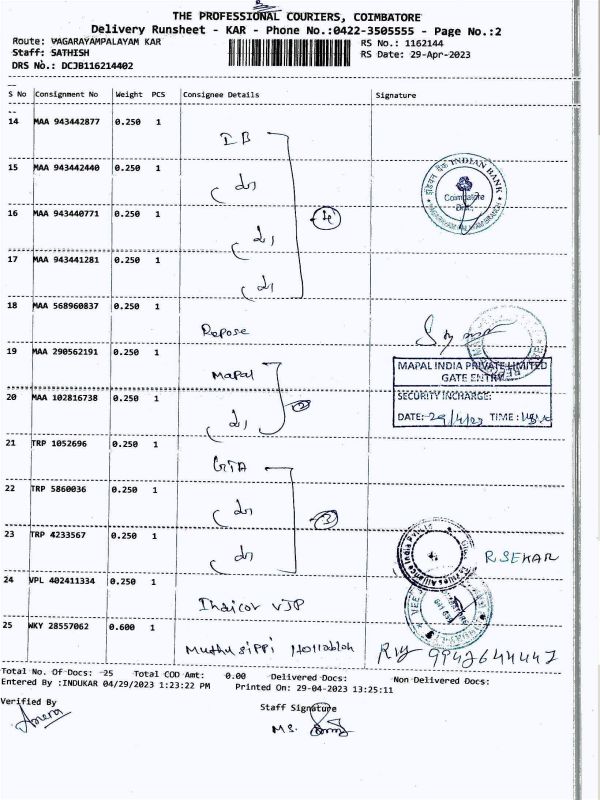 THE PROFESSIONAL COURIERS, COIMBATORE
Delivery Runsheet - KAR - Phone No.:0422-3505555 - Page No.:2
Route: VAGARAYAMPALAYAM KAR
RS No.: 1162144
Staff: SATHISH
RS Date: 29-Apr-2023
DRS No.: DCJB116214402
S No Consignment No Weight PCS Consignee Details Signature
14 MAA 943442877 0.250 1
IB
15 MAA 943442440 0.250 1
INDIAN BANK
Coimbatore
16 MAA 943440771 0.250 1
17 MAA 943441281 0.250 1
18 MAA 568960837 0.250 1
Repose
19 MAA 290562191 0.250 1
Mapal
MAPAL INDIA PRIVATE LIMITED
GATE ENTRY
20 MAA 102816738 0.250 1
2
SECURITY INCHARGE:
DATE: 29/4/23 TIME:
21 TRP 1052696 0.250 1
GTA
22 TRP 5860036 0.250 1
3
23 TRP 4233567 0.250 1
R.SEKAR
24 VPL 402411334 0.250 1
VJP
25 WKY 28557062 0.600 1
Muthusippi
9947644447
Total No. Of Docs: 25 Total COD Amt: 0.00 Delivered Docs: Non Delivered Docs:
Entered By :INDUKAR 04/29/2023 1:23:22 PM Printed On: 29-04-2023 13:25:11
Verified By
Staff Signature
M.S.